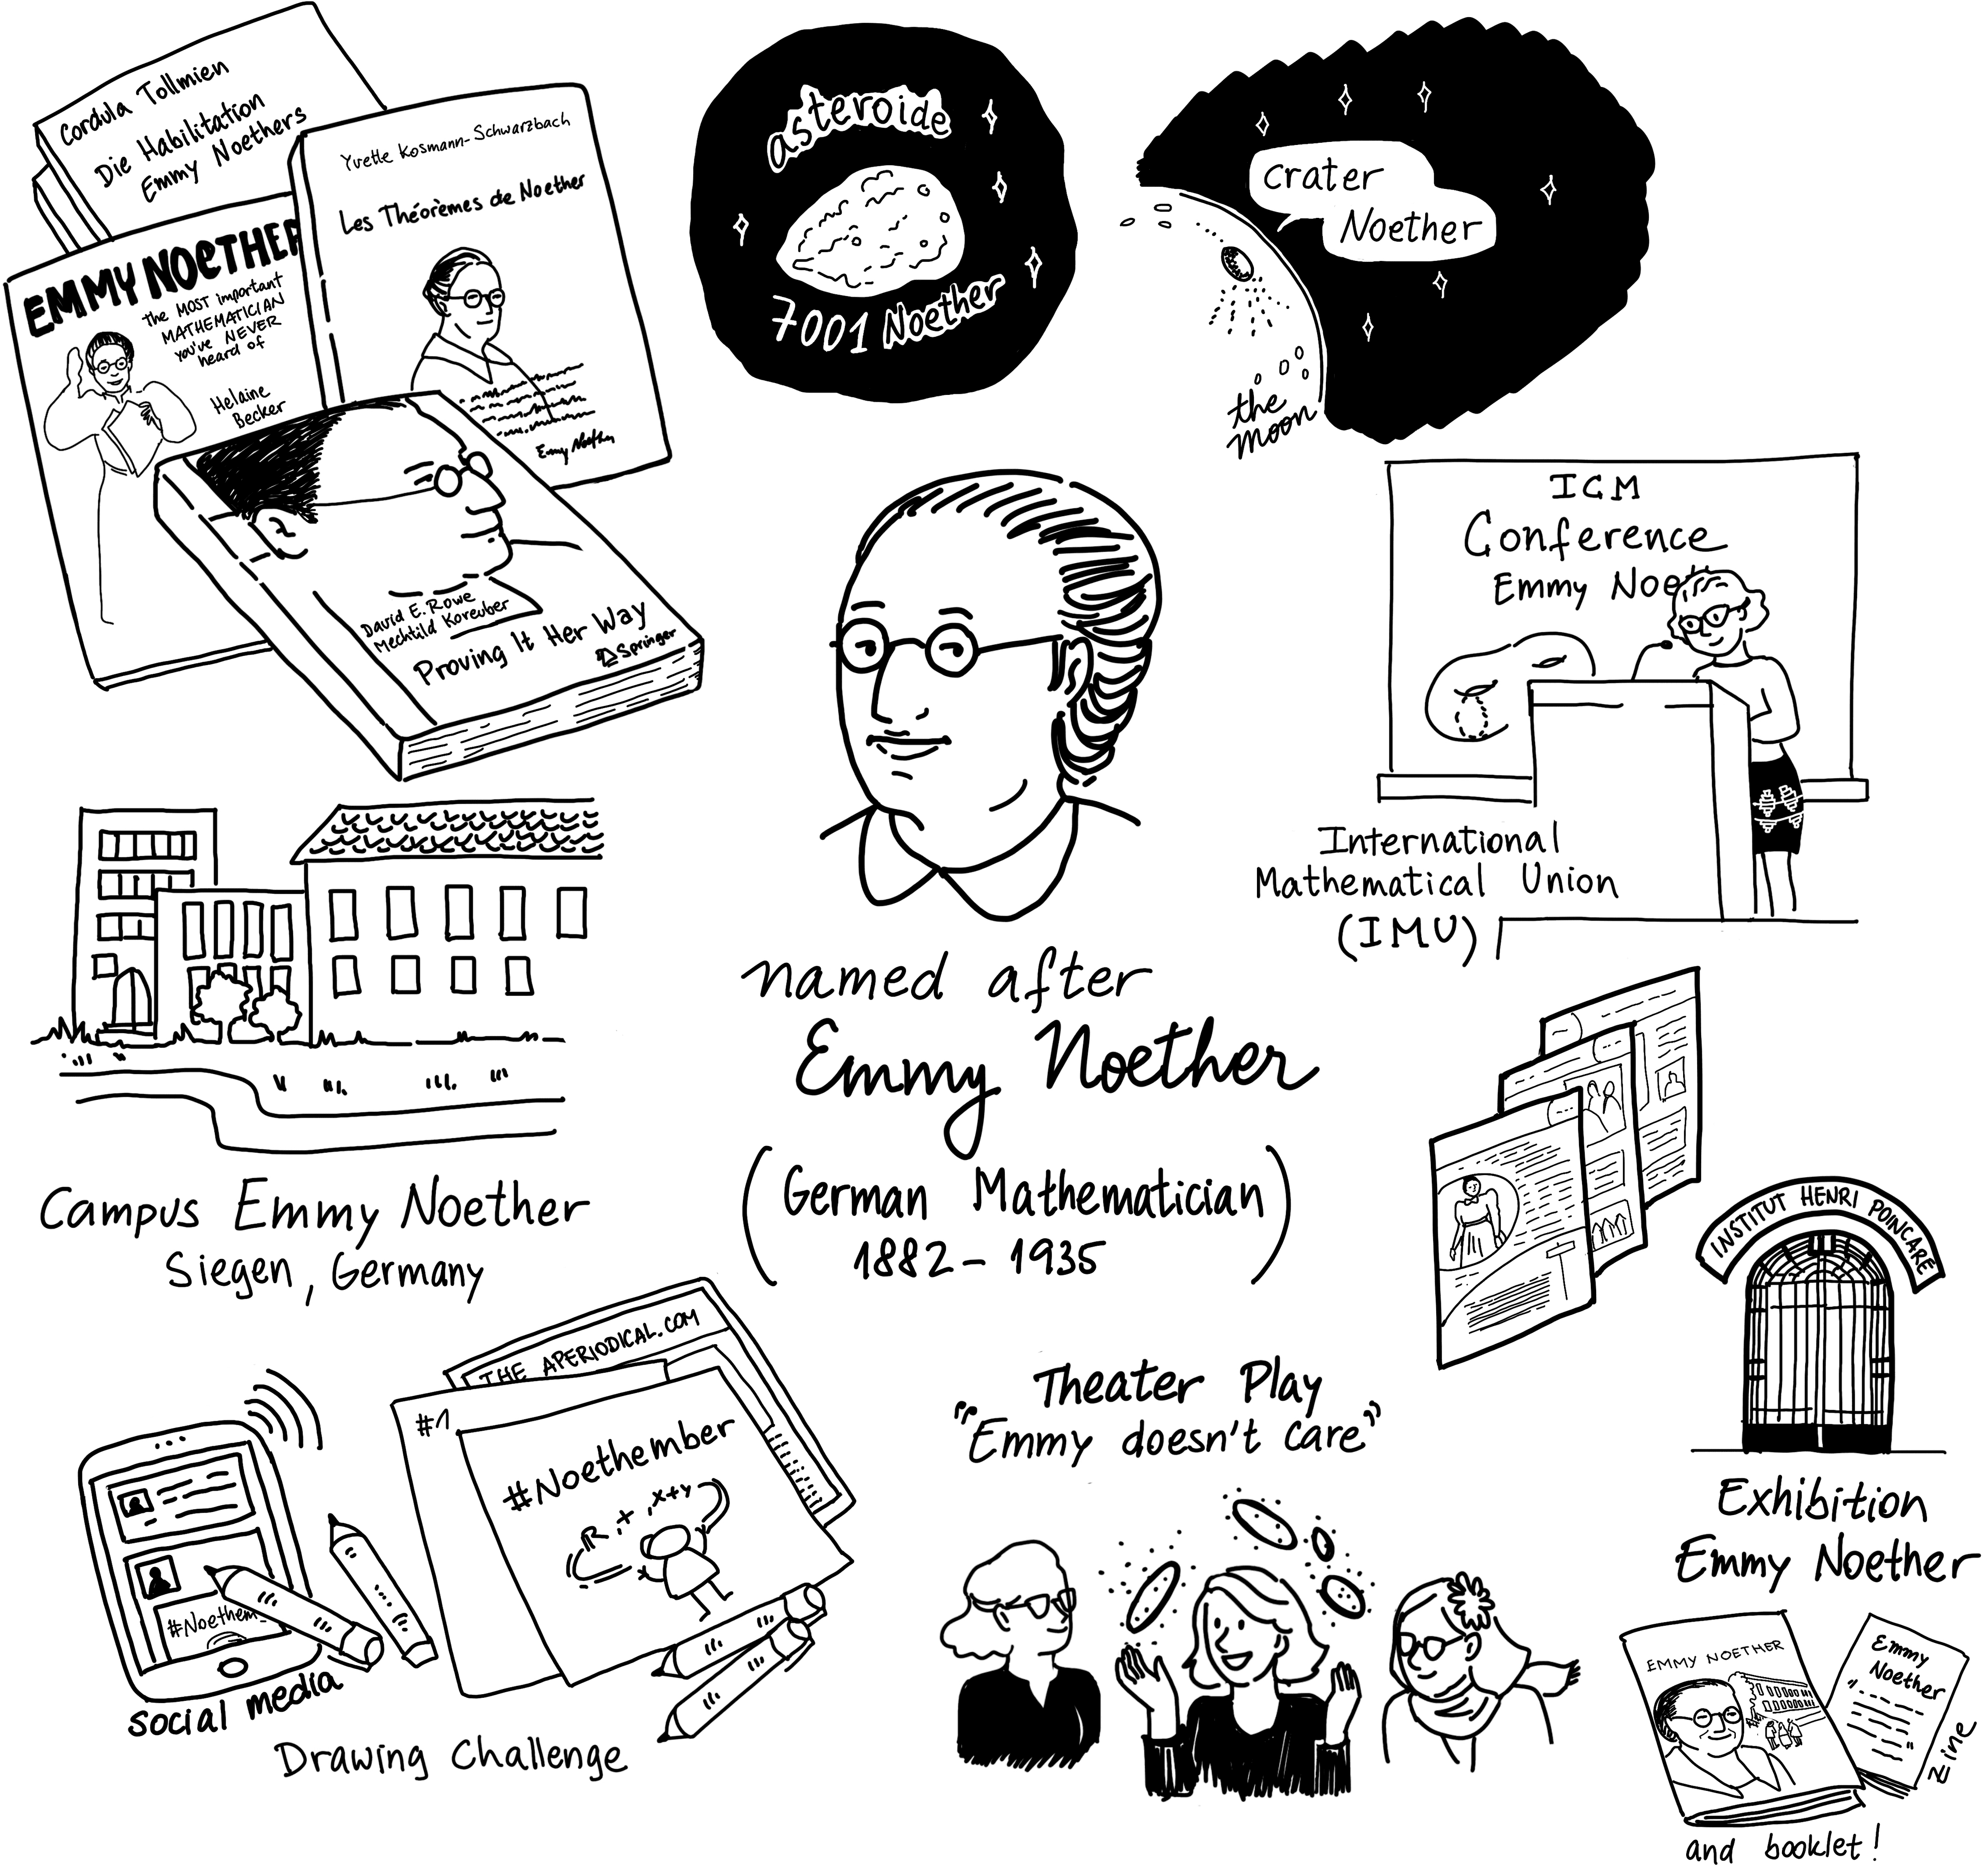 Cordula Tollmien
Die Habilitation
Emmy Noethers
Yvette Kosmann-Schwarzbach
Les Théorèmes de Noether
Emmy Noether
EMMY NOETHER
the MOST important
MATHEMATICIAN
you've NEVER
heard of
Helaine
Becker
David E. Rowe
Mechtild Koreuber
Proving It Her Way
Springer
asteroide
7001 Noether
crater
Noether
the
moon
ICM
Conference
Emmy Noeth
International
Mathematical Union
(IMU)
named after
Emmy Noether
(German Mathematician
1882 - 1935)
Campus Emmy Noether
Siegen, Germany
INSTITUT HENRI POINCARÉ
Exhibition
Emmy Noether
EMMY NOETHER
Emmy
Noether
Zine
and booklet!
THE APERIODICAL.COM
#1
#Noethember
R, +, x+y
#Noethem
social media
Drawing Challenge
Theater Play
"Emmy doesn't care"